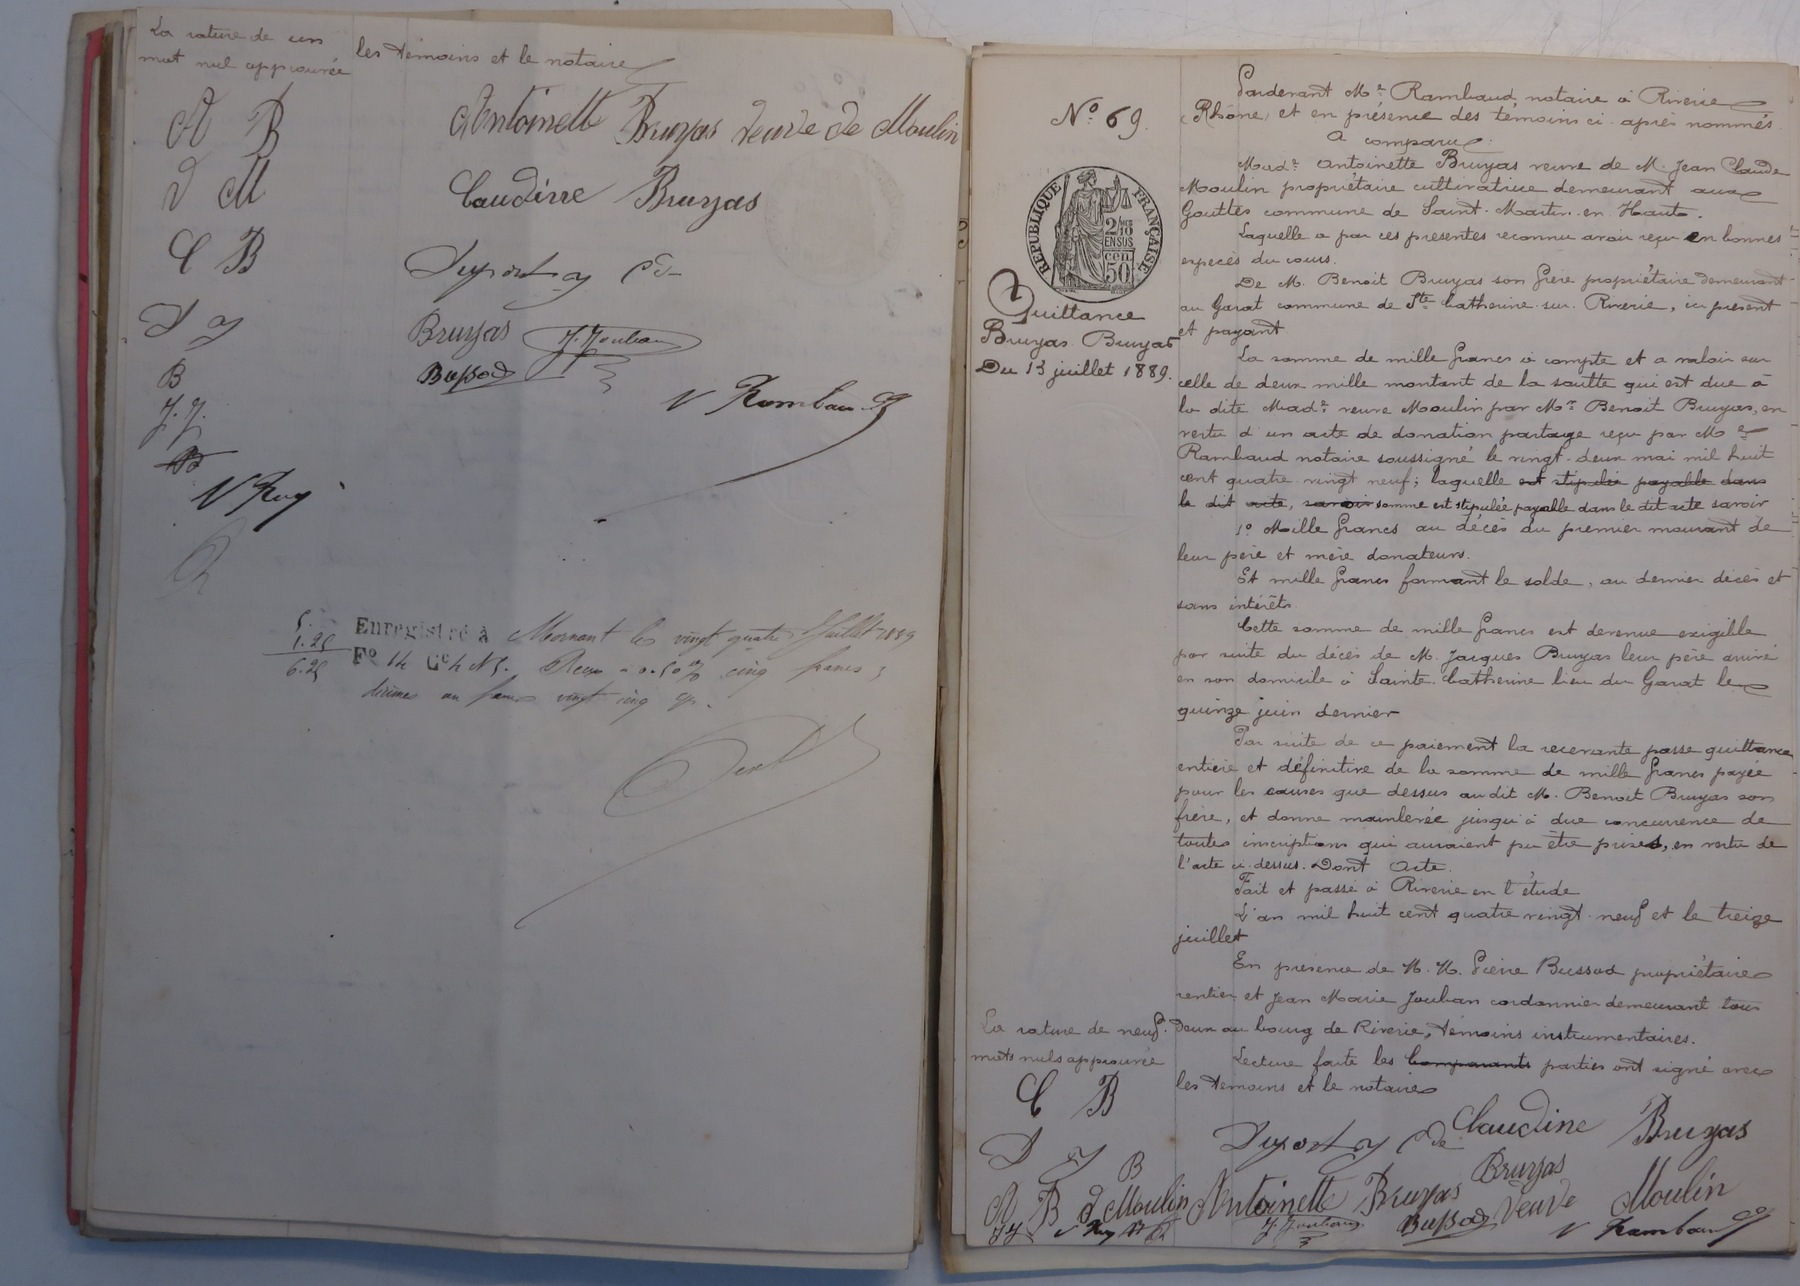 La rature de un
mot nul approuvée
les témoins et le notaire
A B
V M
C B
D J
B
J. J.
B
V Ray
Antoinette Bruyas veuve de Moulin
Claudine Bruyas
Dupont
Bruyas J. Jouban
Bussod
V Rambaud
5.
1.25
6.25
Enregistré à Mornant le vingt quatre Juillet 1889
F° 14 C° 4 N 5. Reçu à 0.50 % cinq francs
décimes un franc vingt cinq c.
N° 69.
REPUBLIQUE FRANÇAISE
2/10
EN SUS
cen.
50
Quittance
Bruyas Bruyas
Du 13 juillet 1889.
Pardevant Me Rambaud, notaire à Riverie
(Rhône) et en présence des témoins ci-après nommés.
A comparu :
Made Antoinette Bruyas veuve de M. Jean Claude
Moulin propriétaire cultivatrice demeurant aux
Gouttes commune de Saint-Martin-en-Haut.
Laquelle a par ces présentes reconnu avoir reçu en bonnes
espèces du cours.
De M. Benoit Bruyas son frère propriétaire demeurant
au Garat commune de Ste Catherine-sur-Riverie, ici présent
et payant
La somme de mille francs à compte et a valoir sur
celle de deux mille montant de la soulte qui est due à
la dite Made veuve Moulin par Mr Benoit Bruyas, en
vertu d'un acte de donation partage reçu par Me
Rambaud notaire soussigné le vingt-deux mai mil huit
cent quatre-vingt neuf; laquelle est stipulée payable dans
le dit acte, savoir somme est stipulée payable dans le dit acte savoir
1° Mille francs au décès du premier mourant de
leur père et mère donateurs.
Et mille francs formant le solde, au dernier décès et
sans intérêts.
Cette somme de mille francs est devenue exigible
par suite du décès de M. Jacques Bruyas leur père arrivé
en son domicile à Sainte-Catherine lieu du Garat le
quinze juin dernier
Par suite de ce paiement la recevante passe quittance
entière et définitive de la somme de mille francs payée
pour les causes que dessus au dit M. Benoit Bruyas son
frère, et donne mainlevée jusqu'à due concurrence de
toutes inscriptions qui auraient pu être prises, en vertu de
l'acte ci-dessus. Dont Acte.
Fait et passé à Riverie en l'étude
L'an mil huit cent quatre vingt-neuf et le treize
juillet
En présence de M. M. Pierre Bussod propriétaire
rentier et Jean Marie Jouban cordonnier demeurant tous
deux au bourg de Riverie, témoins instrumentaires.
Lecture faite les comparants parties ont signé avec
les témoins et le notaire
La rature de neuf
mots nuls approuvée
C B
D J B
A B d Moulin
J J V Ray B
Dupont Claudine Bruyas
Bruyas
Antoinette Bruyas Veuve Moulin
J. Jouban Bussod V Rambaud